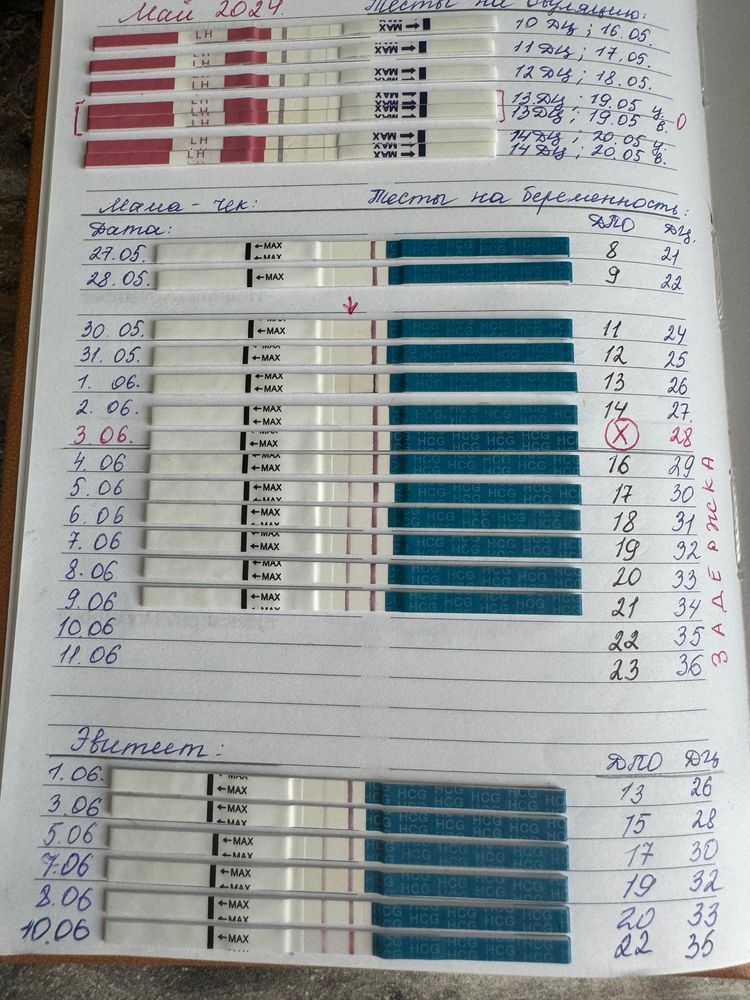 Май 2024.
Тесты на овуляцию:
LH MAX 10 ДЦ; 16.05.
LH MAX 11 ДЦ; 17.05.
LH MAX 12 ДЦ; 18.05.
LH MAX 13 ДЦ; 19.05 у. О
LH MAX 13 ДЦ; 19.05 в.
LH MAX 14 ДЦ; 20.05 у.
LH MAX 14 ДЦ; 20.05 в.
Мама-чек: Тесты на беременность:
Дата: ДПО ДЦ.
27.05. ←MAX 8 21
28.05. ←MAX 9 22
30.05. ←MAX HCG HCG HCG 11 24
31.05. ←MAX HCG HCG HCG 12 25
1. 06. ←MAX HCG HCG HCG 13 26
2. 06. ←MAX HCG HCG HCG 14 27.
3. 06. ←MAX HCG HCG HCG X 28
4. 06 ←MAX HCG HCG HCG 16 29
5. 06 ←MAX HCG HCG HCG 17 30
6. 06 ←MAX HCG HCG HCG 18 31
7. 06 ←MAX HCG HCG HCG 19 32
8. 06 ←MAX HCG HCG HCG 20 33
9. 06 ←MAX HCG HCG HCG 21 34
10.06 22 35
11.06 23 36
ЗАДЕРЖКА
Эвитест: ДПО ДЦ
1.06. ←MAX HCG HCG HCG 13 26
3.06 ←MAX HCG HCG HCG 15 28
5.06 ←MAX HCG HCG HCG 17 30
7.06 ←MAX HCG HCG HCG 19 32
8.06 ←MAX HCG HCG HCG 20 33
10.06 ←MAX HCG HCG HCG 22 35